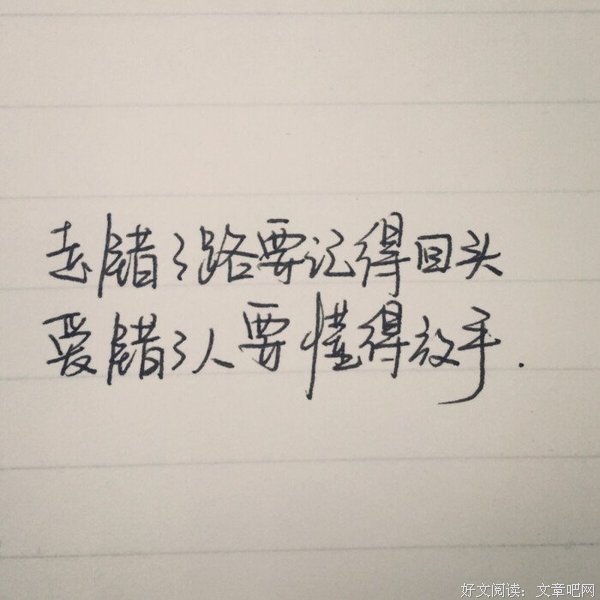 走错了路要记得回头
爱错了人要懂得放手.
好文阅读：文章吧网